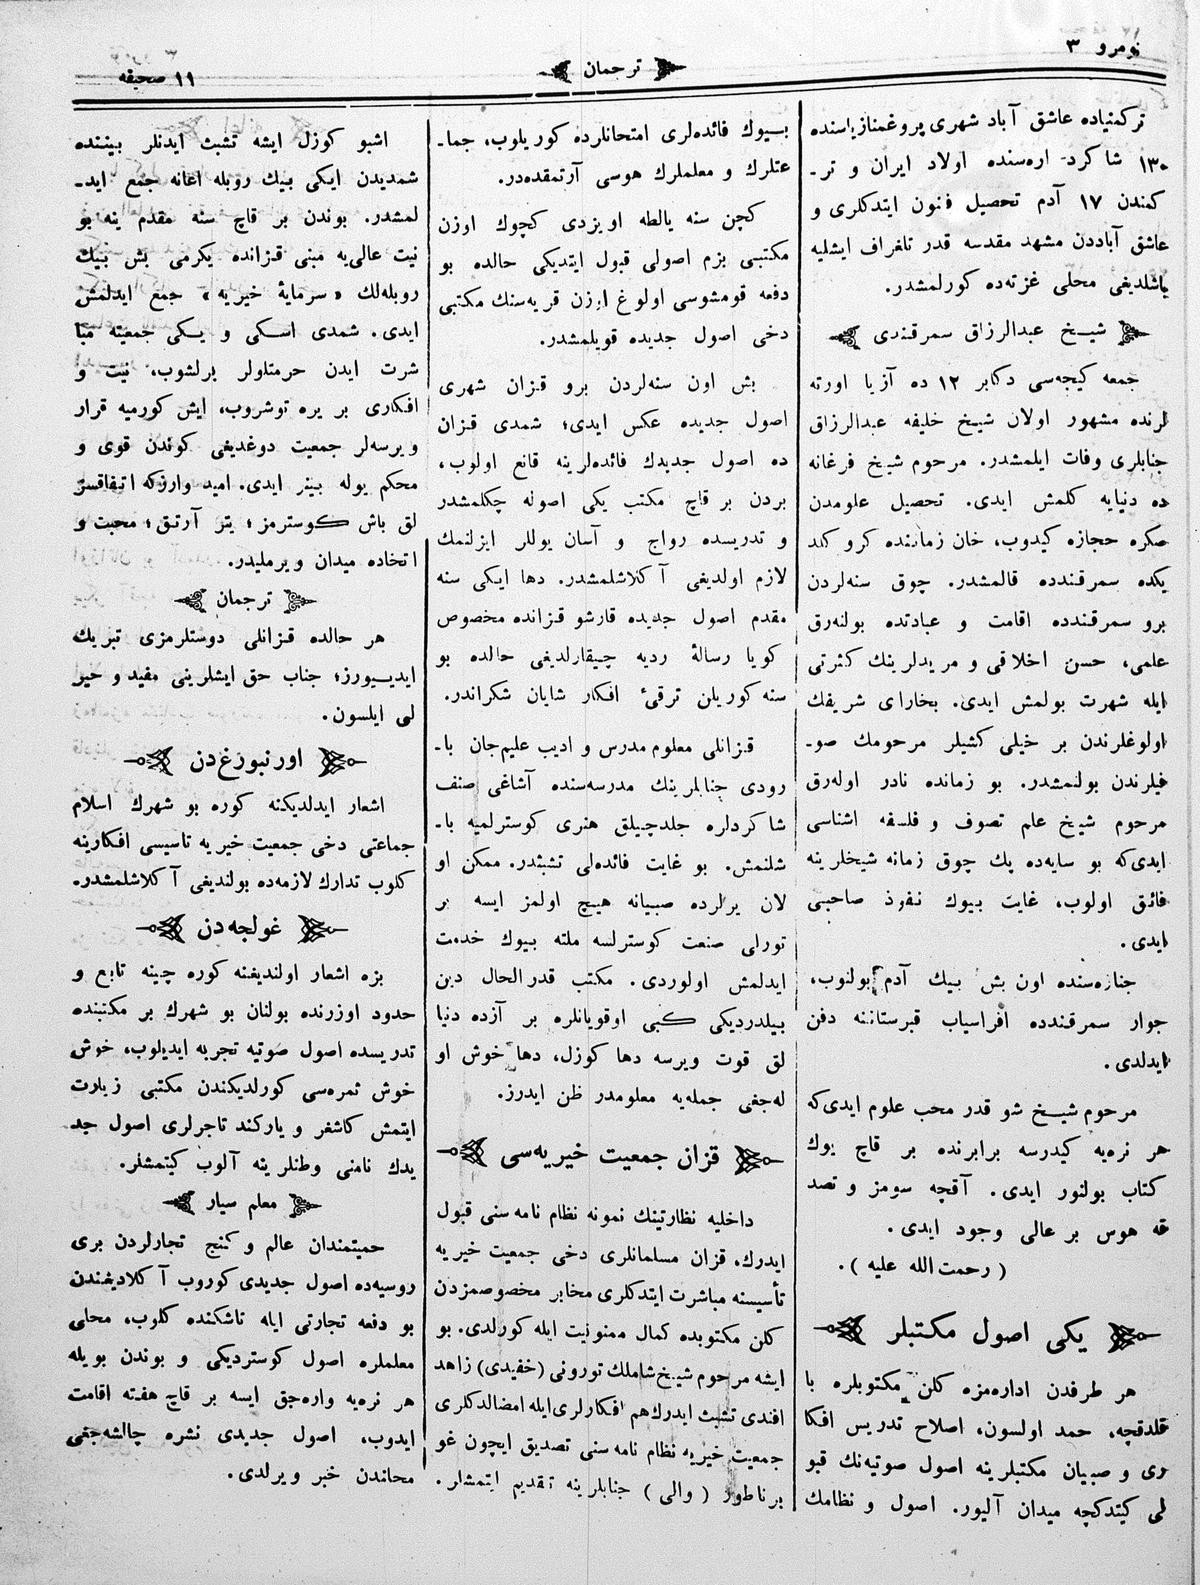 نومرو ٣
ترجمان
١١ صحيفه
تركمنياده عاشق آباد شهرى پروغمنازياسنده
١٣٠ شاكرد اره‌سنده اولاد ايران و تر-
كمندن ١٧ آدم تحصيل فنون ايتدكلرى و
عاشق آباددن مشهد مقدسه قدر تلغراف ايشليه
باشلديغى محلى غزته‌ده كورلمشدر.
شيخ عبدالرزاق سمرقندى
جمعه كيجه‌سى دكابر ١٢ ده آزيا اورته
لرنده مشهور اولان شيخ خليفه عبدالرزاق
جنابلرى وفات ايلمشدر. مرحوم شيخ فرغانه
ده دنيايه كلمش ايدى. تحصيل علومدن
صكره حجازه كيدوب، خان زماننده كرو كلد
يكده سمرقندده قالمشدر. چوق سنه‌لردن
برو سمرقندده اقامت و عبادتده بولنه‌رق
علمى، حسن اخلاقى و مريدلرينك كثرتى
ايله شهرت بولمش ايدى. بخاراى شريفك
اولوغلرندن بر خيلى كشيلر مرحومك صو-
فيلرندن بولنمشدر. بو زمانده نادر اوله‌رق
مرحوم شيخ علم تصوف و فلسفه اشناسى
ايدى‌كه بو سايه‌ده پك چوق زمانه شيخلرينه
فائق اولوب، غايت بيوك نفوذ صاحبى
ايدى.
جنازه‌سنده اون بش بيك آدم بولنوب،
جوار سمرقندده افراسياب قبرستاننه دفن
ايدلدى.
مرحوم شيخ شو قدر محب علوم ايدى‌كه
هر نره‌يه كيدرسه برابرنده بر قاچ يوك
كتاب بولنور ايدى. آقچه سومز و تصد
قه هوس بر عالى وجود ايدى.
(رحمت الله عليه).
يكى اصول مكتبلر
هر طرفدن اداره‌مزه كلن مكتوبلره با
قلدقچه، حمد اولسون، اصلاح تدريس افكا
رى و صبيان مكتبلرينه اصول صوتيه‌نك قبو
لى كيتدكچه ميدان آليور. اصول و نظامك
بيوك فائده‌لرى امتحانلرده كوريلوب، جما-
عتلرك و معلملرك هوسى آرتمقده‌در.
كچن سنه يالطه اويزدى كچوك اوزن
مكتبى بزم اصولى قبول ايتديكى حالده بو
دفعه قومشوسى اولوغ اوزن قريه‌سنك مكتبى
دخى اصول جديده قويلمشدر.
بش اون سنه‌لردن برو قزان شهرى
اصول جديده عكس ايدى؛ شمدى قزان
ده اصول جديدك فائده‌لرينه قانع اولوب،
بردن بر قاچ مكتب يكى اصوله چكلمشدر
و تدريسده رواج و آسان يوللر ايزلنمك
لازم اولديغى آكلاشلمشدر. دها ايكى سنه
مقدم اصول جديده قارشو قزانده مخصوص
كويا رسالۀ رديه چيقارلديغى حالده بو
سنه كوريلن ترقئ افكار شايان شكراندر.
قزانلى معلوم مدرس و اديب عليم‌جان با-
رودى جنابلرينك مدرسه‌سنده آشاغى صنف
شاكردلره جلدچيلق هنرى كوسترلميه با-
شلنمش. بو غايت فائده‌لى تشبثدر. ممكن او
لان يرلرده صبيانه هيچ اولمز ايسه بر
تورلى صنعت كوسترلسه ملته بيوك خدمت
ايدلمش اولوردى. مكتب قدرالحال دين
بيلدرديكى كبى اوقويانلره بر آزده دنيا
لق قوت ويرسه دها كوزل، دها خوش او
له‌جغى جمله‌يه معلومدر ظن ايدرز.
قزان جمعيت خيريه‌سى
داخليه نظارتينك نمونه نظام نامه سنى قبول
ايدرك، قزان مسلمانلرى دخى جمعيت خيريه
تأسيسنه مباشرت ايتدكلرى مخابر مخصوصمزدن
كلن مكتوبده كمال ممنونيت ايله كورلدى. بو
ايشه مرحوم شيخ شاملك تورونى (حفيدى) زاهد
افندى تشبث ايدرك هم افكارلرى ايله امضالدكلرى
جمعيت خيريه نظام نامه سنى تصديق ايچون غو
برناطور (والى) جنابلرينه تقديم ايتمشلر.
اشبو كوزل ايشه تشبث ايدنلر بيننده
شمديدن ايكى بيك روبله اعانه جمع ايد-
لمشدر. بوندن بر قاچ سنه مقدم ينه بو
نيت عالى‌يه مبنى قزانده يكرمى بش بيك
روبله‌لك «سرمايۀ خيريه» جمع ايدلمش
ايدى. شمدى اسكى و يكى جمعيته مبا
شرت ايدن حرمتلولر برلشوب، نيت و
افكارى بر يره توشروب، ايش كورميه قرار
ويرسه‌لر جمعيت دوغديغى كوندن قوى و
محكم يوله بيتر ايدى. اميد واررزكه اتفاقسز
لق باش كوسترمز؛ يتر آرتق؛ محبت و
اتخاده ميدان ويرمليدر.
ترجمان
هر حالده قزانلى دوستلرمزى تبريك
ايديورز؛ جناب حق ايشلرينى مفيد و خير
لى ايلسون.
اورنبورغ‌دن
اشعار ايدلديكنه كوره بو شهرك اسلام
جماعتى دخى جمعيت خيريه تاسيسى افكارينه
كلوب تدارك لازمه‌ده بولنديغى آكلاشلمشدر.
غولجه‌دن
بزه اشعار اولنديغنه كوره چينه تابع و
حدود اوزرنده بولنان بو شهرك بر مكتبنده
تدريسده اصول صوتيه تجربه ايديلوب، خوش
خوش ثمره‌سى كورلديكندن مكتبى زيارت
ايتمش كاشغر و ياركند تاجرلرى اصول جد
يدك نامنى وطنلرينه آلوب كيتمشلر.
معلم سيار
حميتمندان عالم و كنج تجارلردن برى
روسيه‌ده اصول جديدى كوروب آكلاديغندن
بو دفعه تجارتى ايله تاشكنده كلوب، محلى
معلملره اصول كوسترديكى و بوندن بويله
هر نره‌يه واره‌جق ايسه بر قاچ هفته اقامت
ايدوب، اصول جديدى نشره چالشه‌جغى
محاندن خبر ويرلدى.